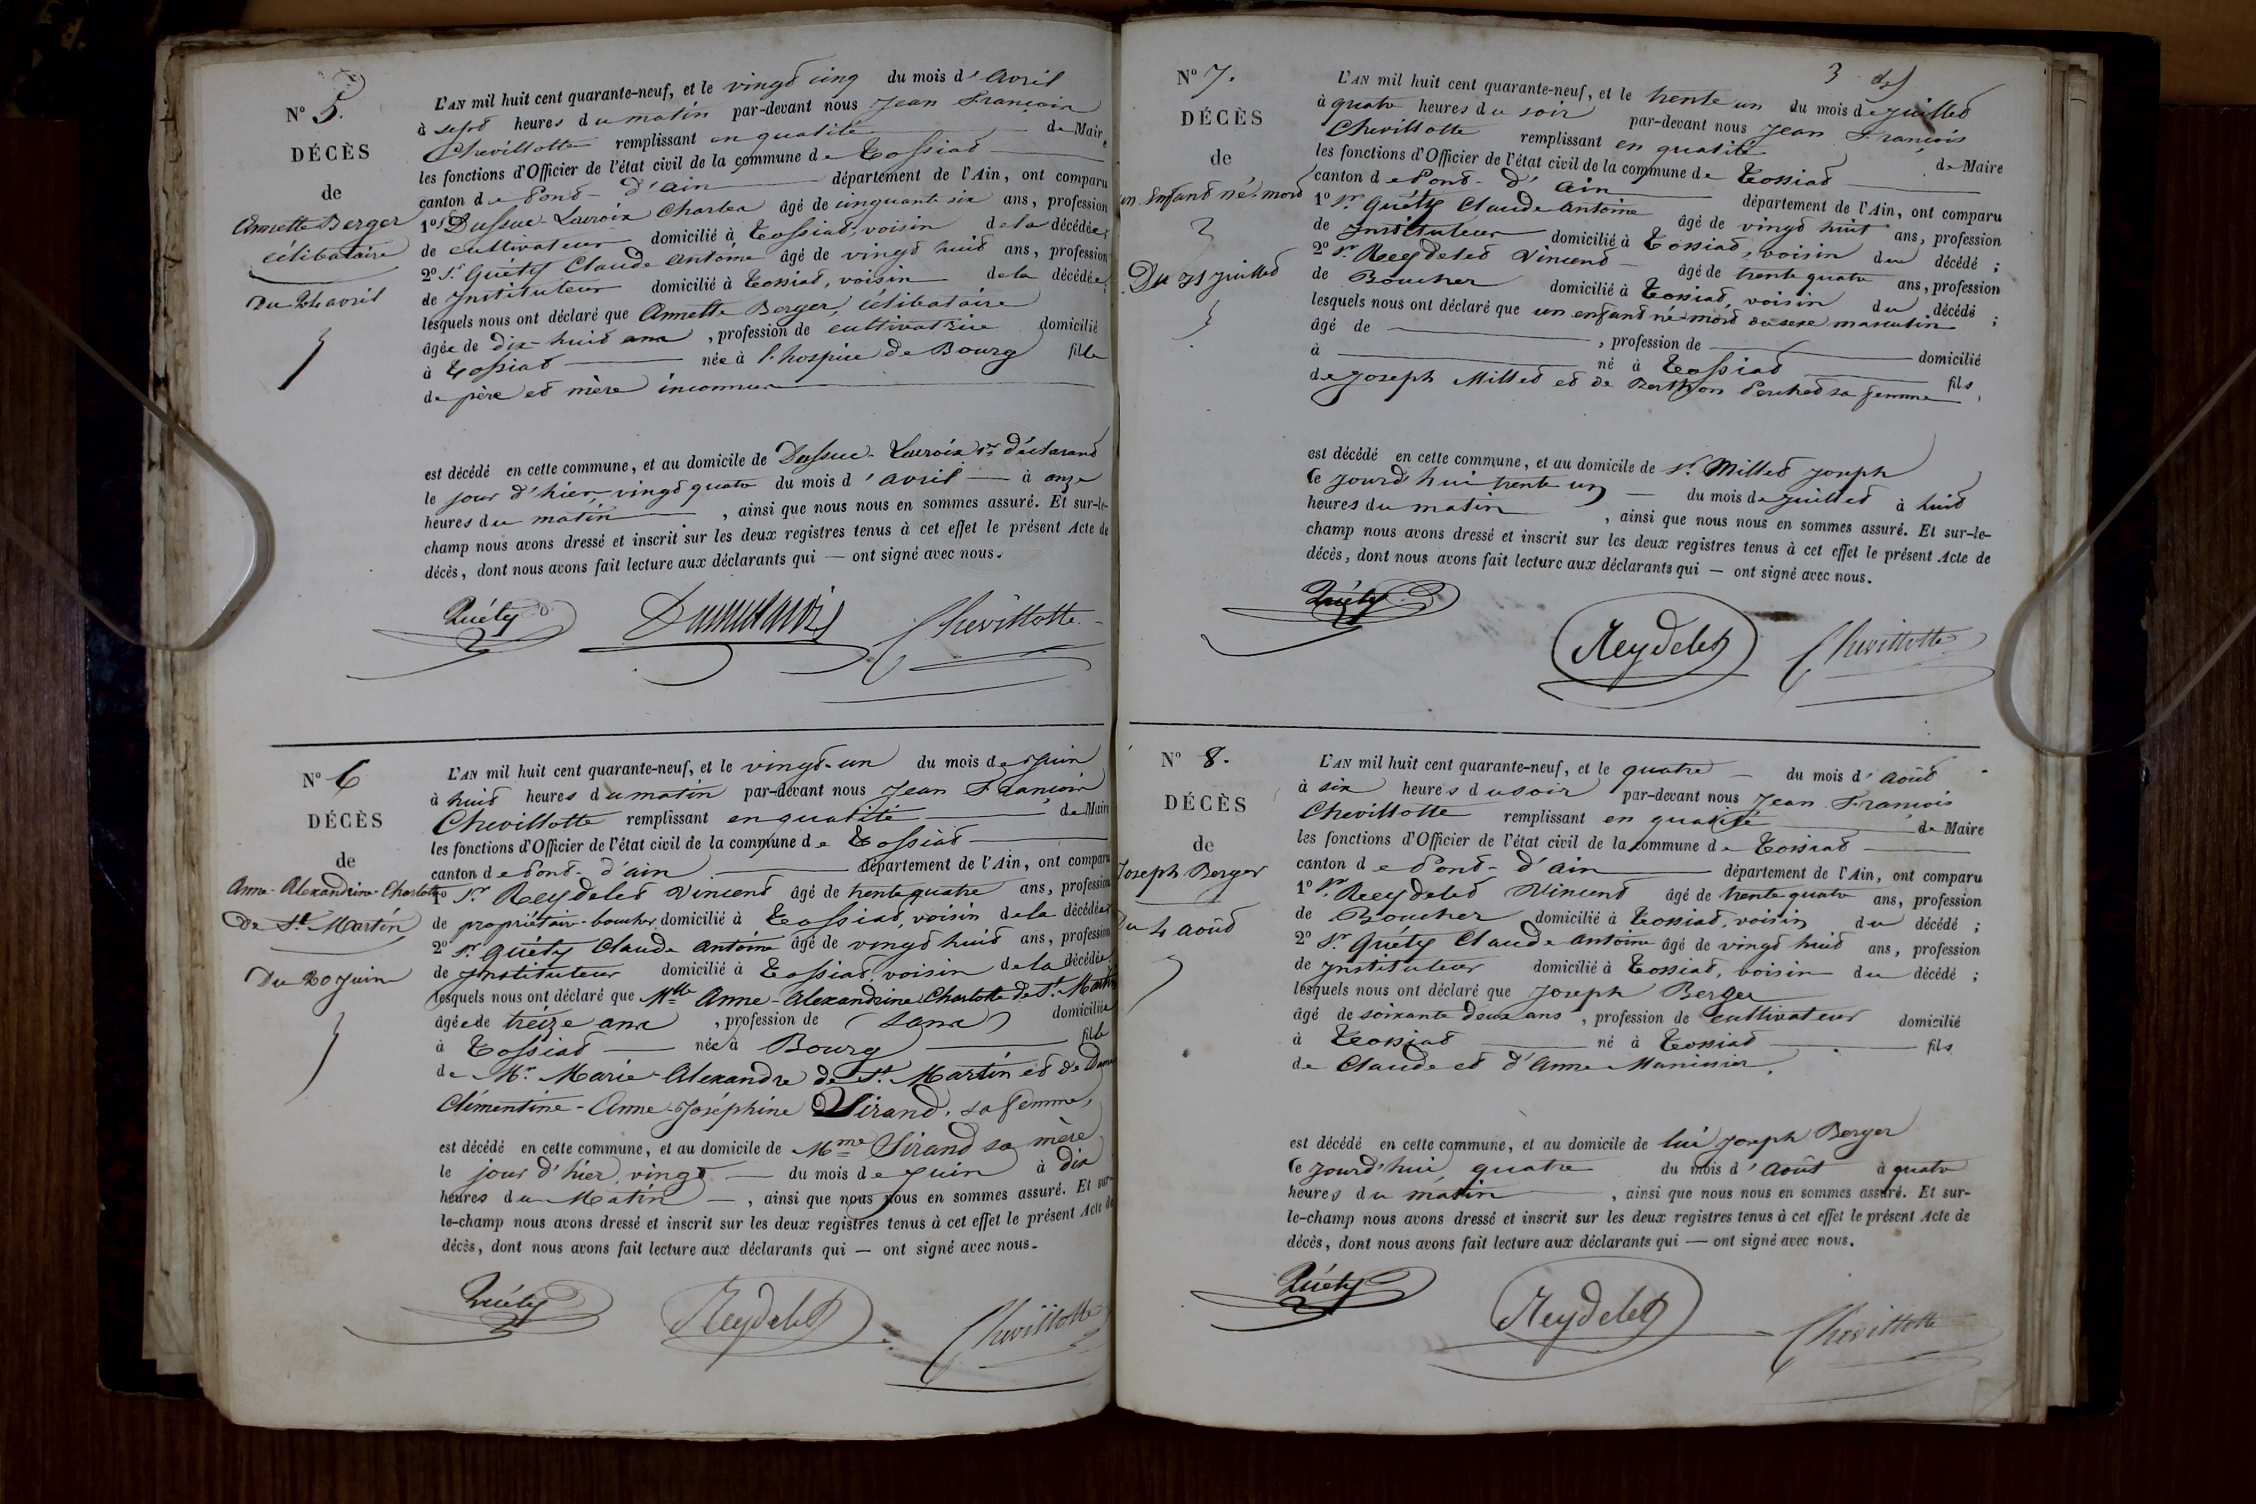 N° 5.
DÉCÈS
de
Annette Berger
célibataire
Du 24 avril
L'AN mil huit cent quarante-neuf, et le vingt cinq du mois d'Avril
à sept heures du matin par-devant nous Jean François
Chevillotte remplissant en qualité de Maire
les fonctions d'Officier de l'état civil de la commune de Tossiat
canton de Pont-d'ain département de l'Ain, ont comparu
1° Dussuc-Lacroix Charles âgé de cinquante six ans, profession
de cultivateur domicilié à Tossiat, voisin de la décédée;
2° Sr Quéty Claude Antoine âgé de vingt huit ans, profession
de Instituteur domicilié à Tossiat, voisin de la décédée;
lesquels nous ont déclaré que Annette Berger, célibataire
âgée de dix-huit ans, profession de cultivatrice domicilié
à Tossiat née à l'hospice de Bourg fille
de père et mère inconnus
est décédé en cette commune, et au domicile de Dussuc-Lacroix 1er déclarant
le jour d'hier, vingt quatre du mois d'avril à onze
heures du matin, ainsi que nous nous en sommes assuré. Et sur-le-
champ nous avons dressé et inscrit sur les deux registres tenus à cet effet le présent Acte de
décès, dont nous avons fait lecture aux déclarants qui — ont signé avec nous.
Quéty Chevillotte
N° 6
DÉCÈS
de
Anne-Alexandrine-Charlotte
De St Martin
Du 20 Juin
L'AN mil huit cent quarante-neuf, et le vingt-un du mois de Juin
à huit heures du matin par-devant nous Jean François
Chevillotte remplissant en qualité de Maire
les fonctions d'Officier de l'état civil de la commune de Tossiat
canton de Pont-d'ain département de l'Ain, ont comparu
1° Sr Reydelet Vincent âgé de trente quatre ans, profession
de propriétaire-boucher domicilié à Tossiat, voisin de la décédée;
2° Sr Quéty Claude Antoine âgé de vingt huit ans, profession
de Instituteur domicilié à Tossiat, voisin de la décédée;
lesquels nous ont déclaré que Mlle Anne-Alexandrine Charlotte de St Martin
âgée de treize ans, profession de (sans) domiciliée
à Tossiat née à Bourg fille
de Mr Marie-Alexandre de St Martin et de Dame
Clémentine-Anne-Joséphine Sirand, sa femme,
est décédé en cette commune, et au domicile de Mme Sirand sa mère
le jour d'hier, vingt du mois de Juin à dix
heures du Matin —, ainsi que nous nous en sommes assuré. Et sur-
le-champ nous avons dressé et inscrit sur les deux registres tenus à cet effet le présent Acte de
décès, dont nous avons fait lecture aux déclarants qui — ont signé avec nous.
Quéty Reydelet Chevillotte
3
N° 7.
DÉCÈS
de
un Enfant né-mort
Du 31 Juillet
L'AN mil huit cent quarante-neuf, et le trente un du mois de Juillet
à quatre heures du soir par-devant nous Jean François
Chevillotte remplissant en qualité de Maire
les fonctions d'Officier de l'état civil de la commune de Tossiat
canton de Pont-d'ain département de l'Ain, ont comparu
1° Sr Quéty Claude Antoine âgé de vingt huit ans, profession
de Instituteur domicilié à Tossiat, voisin du décédé;
2° Sr Reydelet Vincent âgé de trente quatre ans, profession
de Boucher domicilié à Tossiat, voisin du décédé;
lesquels nous ont déclaré que un enfant né-mort du sexe masculin
âgé de , profession de domicilié
à né à Tossiat fils
de Joseph Millet et de sa femme
est décédé en cette commune, et au domicile de Sr Millet Joseph
Ce Jourd'hui trente un — du mois de Juillet à huit
heures du matin, ainsi que nous nous en sommes assuré. Et sur-le-
champ nous avons dressé et inscrit sur les deux registres tenus à cet effet le présent Acte de
décès, dont nous avons fait lecture aux déclarants qui — ont signé avec nous.
Quéty Reydelet Chevillotte
N° 8.
DÉCÈS
de
Joseph Berger
Du 4 août
L'AN mil huit cent quarante-neuf, et le quatre — du mois d'août
à six heures du soir par-devant nous Jean François
Chevillotte remplissant en qualité de Maire
les fonctions d'Officier de l'état civil de la commune de Tossiat
canton de Pont-d'ain département de l'Ain, ont comparu
1° Sr Reydelet Vincent âgé de trente quatre ans, profession
de Boucher domicilié à Tossiat, voisin du décédé;
2° Sr Quéty Claude Antoine âgé de vingt huit ans, profession
de Instituteur domicilié à Tossiat, voisin du décédé;
lesquels nous ont déclaré que Joseph Berger
âgé de soixante deux ans, profession de cultivateur domicilié
à Tossiat né à Tossiat fils
de Claude et d'Anne
est décédé en cette commune, et au domicile de lui Joseph Berger
Ce Jourd'hui quatre du mois d'Août à quatre
heures du matin, ainsi que nous nous en sommes assuré. Et sur-
le-champ nous avons dressé et inscrit sur les deux registres tenus à cet effet le présent Acte de
décès, dont nous avons fait lecture aux déclarants qui — ont signé avec nous.
Quéty Reydelet Chevillotte